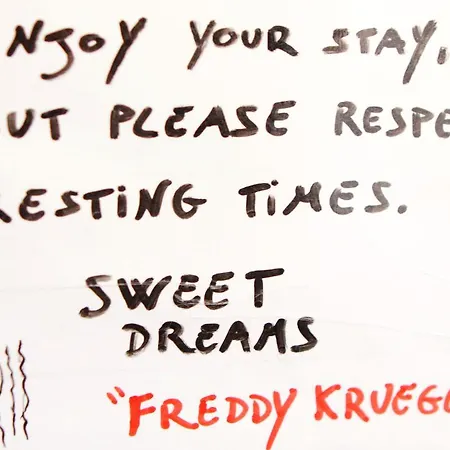 NJOY YOUR STAY,
UT PLEASE RESPE
RESTING TIMES.
SWEET
DREAMS
"FREDDY KRUEGE